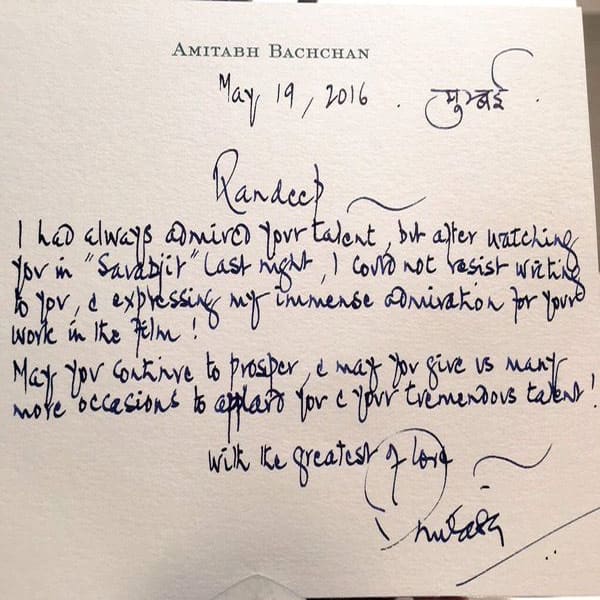 AMITABH BACHCHAN
May 19, 2016. मुम्बई.
Randeep ~
I had always admired your talent, but after watching
you in "Sarabjit" last night, I could not resist writing
to you, & expressing my immense admiration for your
work in the film!
May you continue to prosper, & may you give us many
more occasions to applaud you & your tremendous talent!
with the greatest of love ~